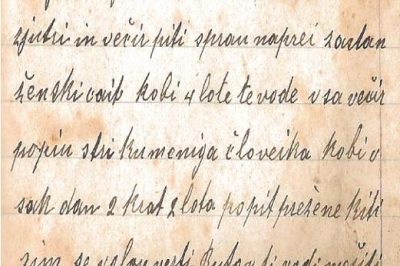 zjutri in večir piti sprau naprei zautan
ženski cait kobi 4 lote te vode vsa večir
popiu stri kumeniga človeika kobi v
sak dan 2 krat 2 lota popit prežene kiti
zim se